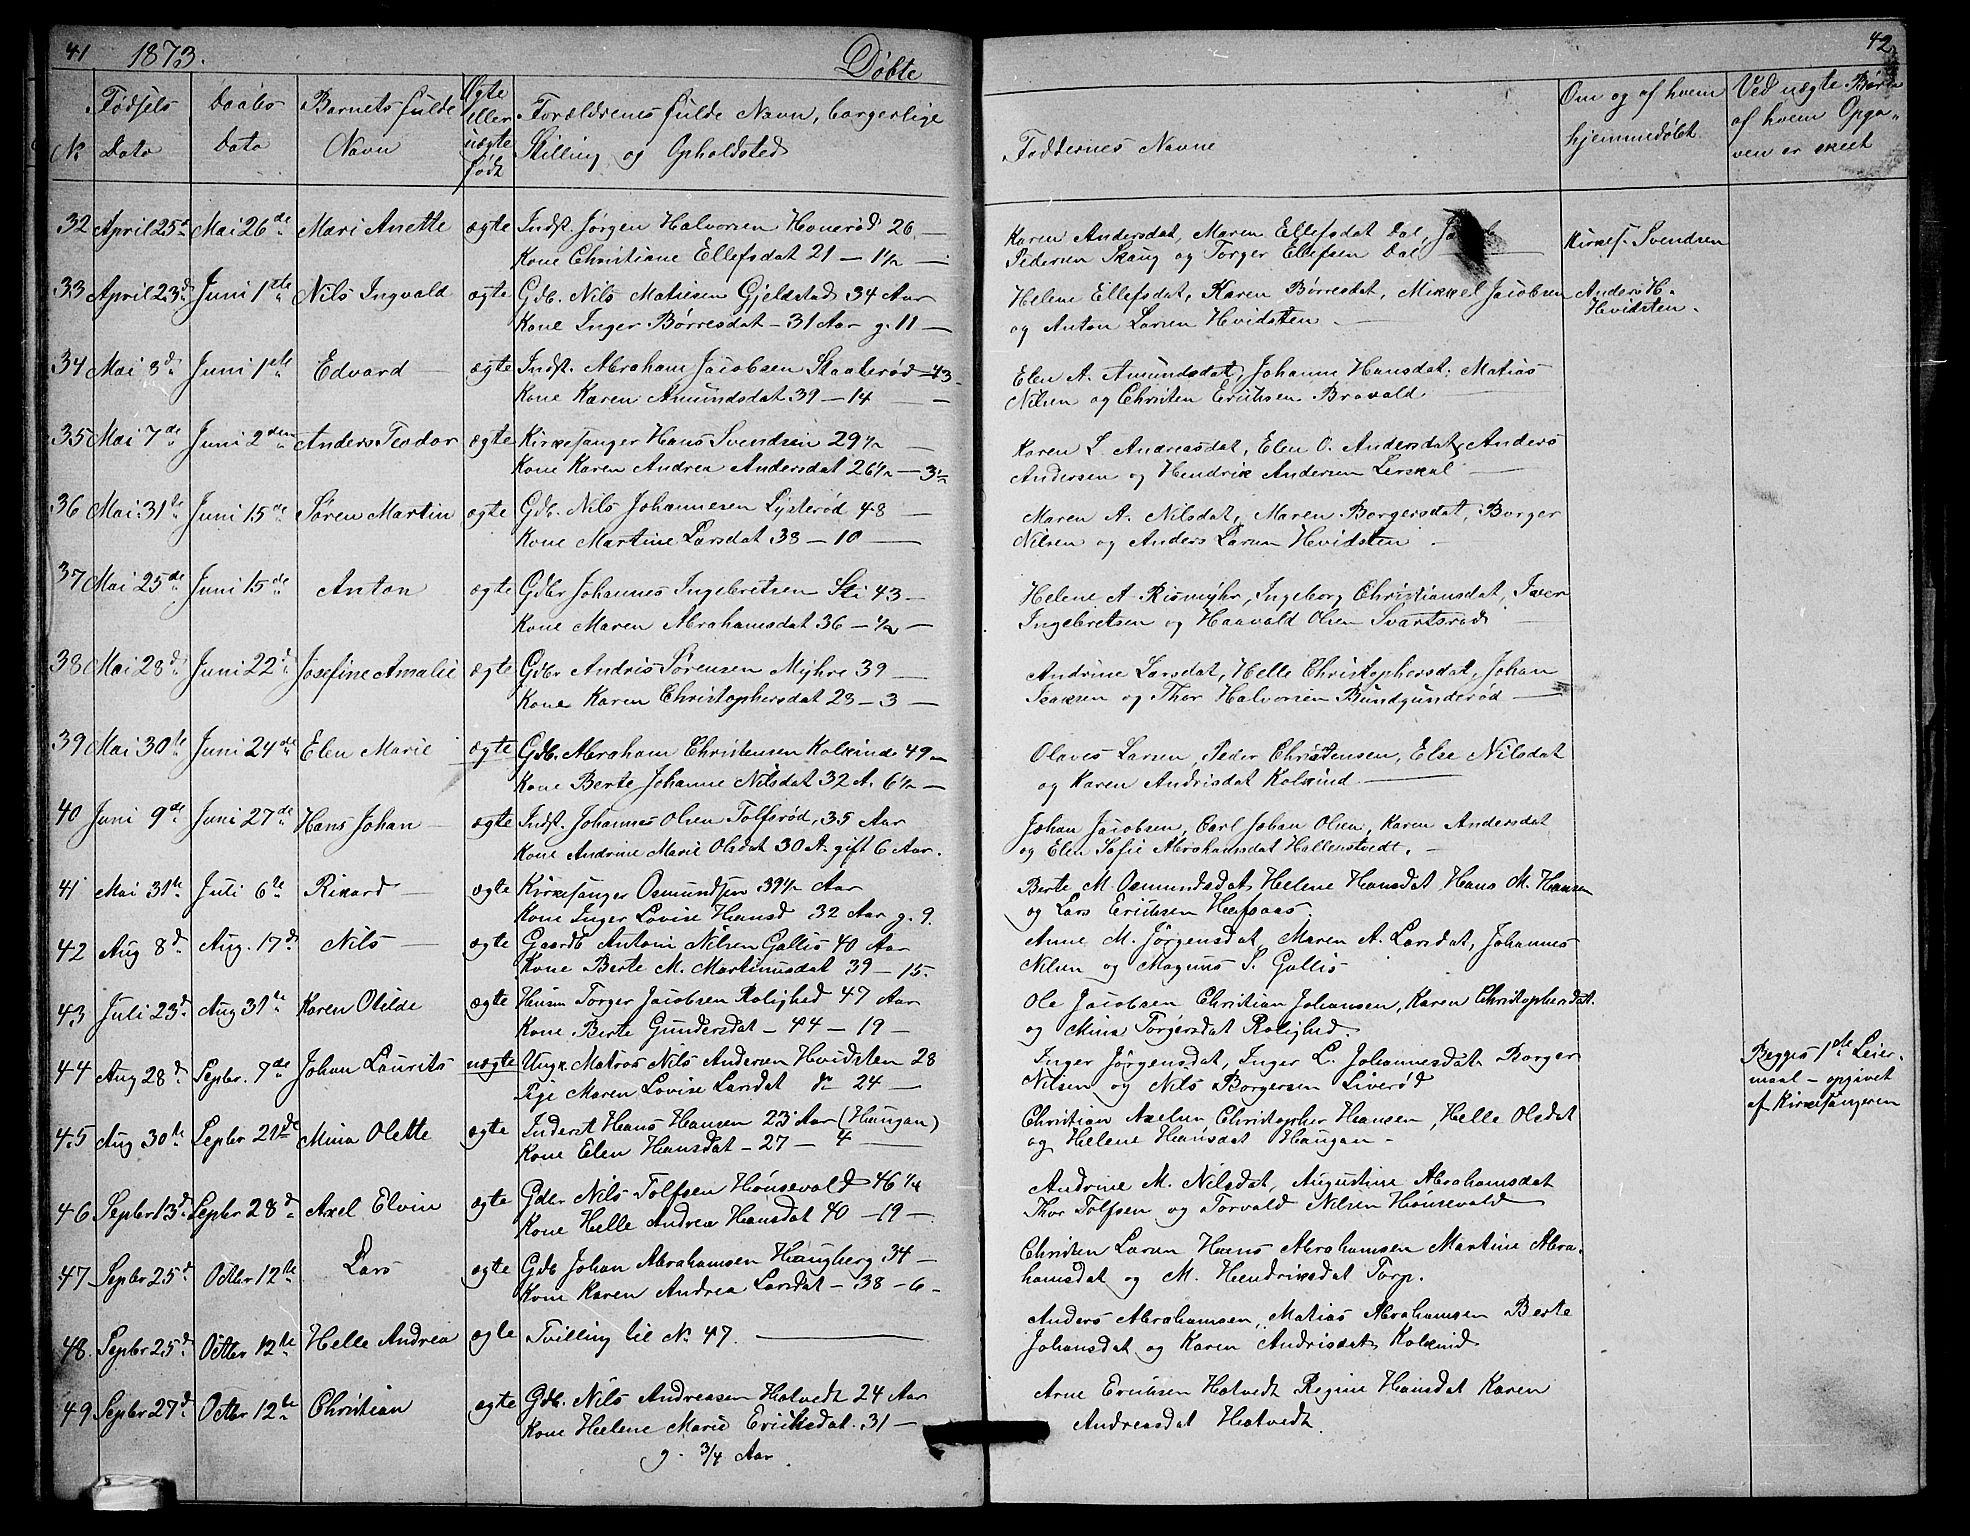 41 1873. Døbte 42
N. Fødsels Dato Daabs Dato Barnets fulde Navn Ægte eller uægte født Forældrenes fulde Navn, borgerlige Stilling og Opholdsted Faddernes Navne Om og af hvem hjemmedøbt Ved uægte Børn af hvem Opgaven er skeet
32 April 25de Mai 26de Mari Anette ægte Indst. Jørgen Halvorsen Honerød 26 — Karen Andersdat, Maren Ellefsdat Dal, Jacob Kirkes. Svendsen
Kone Christiane Ellefsdat 21 — 1½ — Pedersen Skaug og Torger Ellefsen Dal
33 April 23d Juni 1ste Nils Ingvald ægte Gdb. Nils Matiesen Gjeldstad 34 Aar Helene Ellefsdat, Karen Børresdat, Mikkel Jacobsen Anders H.
Kone Inger Børresdat — 31 Aar g. 11 — og Anton Larsen Hvidsten — Hvidsten.
34 Mai 3d Juni 1ste Edvard ægte Indst. Abraham Jacobsen Staalerød 43 — Elen A. Amundsdat, Johanne Hansdat, Matias
Kone Karen Amundsdat 39 — 14 — Nilsen og Christen Erichsen Brovald —
35 Mai 7de Juni 2den Anders Teodor ægte Kirkesanger Hans Svendsen 29½ — Karen L. Andreasdat, Elen O. Andersdat, Anders
Kone Karen Andrea Andersdat 26½ — 3½ Andersen og Hendrik Andersen Lerskal —
36 Mai 31te Juni 15de Søren Martin ægte Gdb. Nils Johannesen Lysterød 48 — Maren A. Nilsdat, Maren Borgersdat, Borger
Kone Martine Larsdat 38 — 10 — Nilsen og Anders Larsen Hvidsten —
37 Mai 25de Juni 15de Anton ægte Gdbr Johannes Ingebretsen Sti 43 — Helene A. Rismyhr, Ingeborg Christiansdat, Iver
Kone Maren Abrahamsdat 36 — ½ — Ingebretsen og Haavald Olsen Svartsrød
38 Mai 28de Juni 22de Josefine Amalie ægte Gdbr Andris Sørensen Myhre 39 — Andrine Larsdat, Helle Christophersdat, Johan
Kone Karen Christophersdat 23 — 3 — Isaksen og Thor Halvorsen Bundgunderød —
39 Mai 30te Juni 24de Elen Marie ægte Gdb. Abraham Christensen Kolkind 49 — Olaves Larsen, Peder Christensen, Else Nilsdat
Kone Berte Johanne Nilsdat 32 A. 6½ — og Karen Andrisdat Kolkind. —
40 Juni 9de Juni 27de Hans Johan ægte Indst. Johannes Olsen Tolfsrød, 35 Aar Johan Jacobsen, Carl Johan Olsen, Karen Andersdat
Kone Andrine Marie Olsdat 30 A. gift 6 Aar. og Elen Sofie Abrahamsdat Hallenstvedt. —
41 Mai 31te Juli 6te Rikard ægte Kirkesanger Osmundsen 39½ Aar Berte M. Osmundsdat Helene Hansdat Hans M. Hansen
Kone Inger Lovise Hansd 32 Aar g. 9. og Lars Erichsen Hafsaas.
42 Aug 8d Aug. 17d Nils ægte Gaardb Antoni Nilsen Gallis 40 Aar Anne M. Jørgensdat, Maren A. Larsdat, Johannes
Kone Berte M. Martinusdat 39 — 15. Nilsen og Magnus S. Gallis
43 Juli 23d Aug 31te Karen Otilde ægte Husm Torger Jacobsen Rolighed 47 Aar Ole Jacobsen Christian Johansen, Karen Christophersdat
Kone Berte Gundersdat — 44 — 19 — og Mina Torgersdat Rolighed.
44 Aug 28d Septbr. 7de Johan Laurits uægte Ungk. Matros Nils Andersen Hvidsten 28 Inger Jørgensdat, Inger L. Johannesdat Borger Begges 1ste Leier-
Pige Maren Lovise Larsdat do 24 — Nilsen og Nils Borgersen Liverød maal — opgivet
45 Aug 30te Septbr 21de Mina Olette ægte Inderst Hans Hansen 23 Aar (Haugan) Christian Axelsen Christopher Hansen, Helle Olsdat af Kirkesangeren
Kone Elen Hansdat — 27 — 4 — og Helene Hansdat Haugan —
46 Septbr 13d Septbr 28d Axel Elvin ægte Gdbr Nils Tolfsen Hønsevald 46 ¼ Andrine M. Nilsdat, Augustine Abrahamsdat
Kone Helle Andrea Hansdat 40 — 19 — Thor Tolfsen og Torvald Nilsen Hønsevald
47 Septbr 25d Octbr 12te Lars ægte Gdb Johan Abrahamsen Haugberg 34 — Christen Larsen Hans Abrahamsen Martine Abra-
Kone Karen Andrea Larsdat — 38 — 6 — hamsdat og M. Hendriksdat Torp.
48. Septbr 25d Octbr 12te Helle Andrea ægte Tvilling til No 47. — Anders Abrahamsen, Matias Abrahamsen Berte
Johansdat og Karen Andrisdat Kolkind
49 Septbr 27d Octbr 12te Christian ægte Gdb. Nils Andreasen Hotvedt 24 Aar Arne Erichsen Hotvedt Regine Hansdat Karen
Kone Helene Marie Eriksdat. 31 — Andreasdat Hotvedt.
g. ¾ Aar.